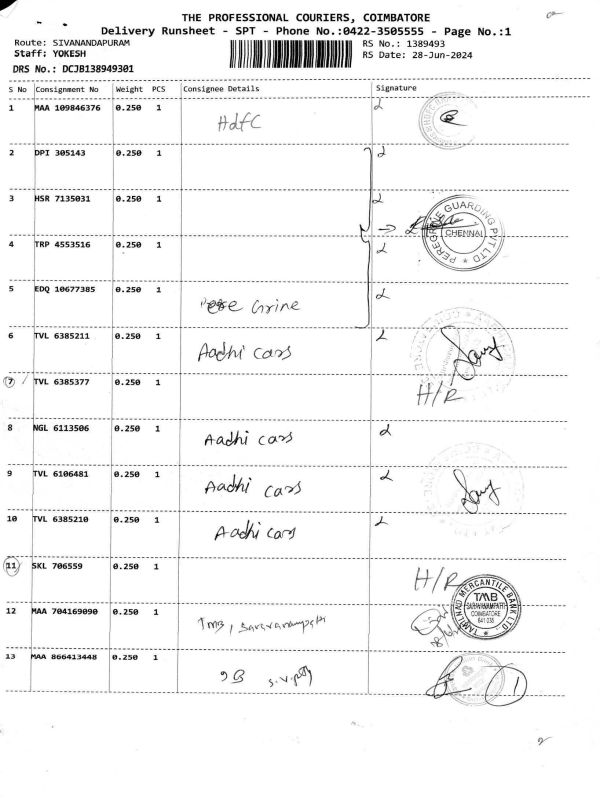 THE PROFESSIONAL COURIERS, COIMBATORE
Delivery Runsheet - SPT - Phone No.:0422-3505555 - Page No.:1
Route: SIVANANDAPURAM RS No.: 1389493
Staff: YOKESH RS Date: 28-Jun-2024
DRS No.: DCJB138949301
S No Consignment No Weight PCS Consignee Details Signature
1 MAA 109846376 0.250 1
HdfC
2 DPI 305143 0.250 1
3 HSR 7135031 0.250 1
PEREGRINE GUARDING PVT LTD
CHENNAI
4 TRP 4553516 0.250 1
5 EDQ 10677385 0.250 1
Grine
6 TVL 6385211 0.250 1
Aadhi cars
7 TVL 6385377 0.250 1
H/R
8 NGL 6113506 0.250 1
Aadhi cars
9 TVL 6106481 0.250 1
Aadhi cars
10 TVL 6385210 0.250 1
Aadhi cars
11 SKL 706559 0.250 1
H/R
TAMILNAD MERCANTILE BANK LTD
TMB
SARAVANAMPATTI
COIMBATORE
641 035
12 MAA 704169090 0.250 1
TMB, Saravanampatti
13 MAA 866413448 0.250 1
S.V.
1